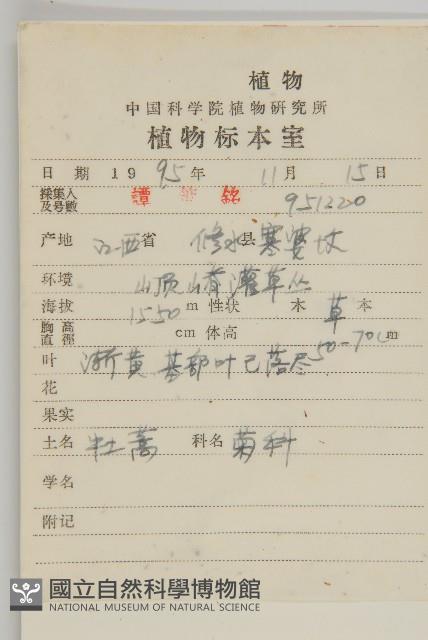 植物
中国科学院植物研究所
植物标本室
日期 1995年 11月 15日
採集人及号數 譚 銘 951220
产地 江西省 修水县 寨婆坟
环境 山顶山脊灌草丛
海拔 1550 m 性状 木 草 本
胸高直徑 cm 体高 50-70cm
叶 渐黄 基部叶已落尽
花
果实
土名 牡蒿 科名 菊科
学名
附记
國立自然科學博物館
NATIONAL MUSEUM OF NATURAL SCIENCE